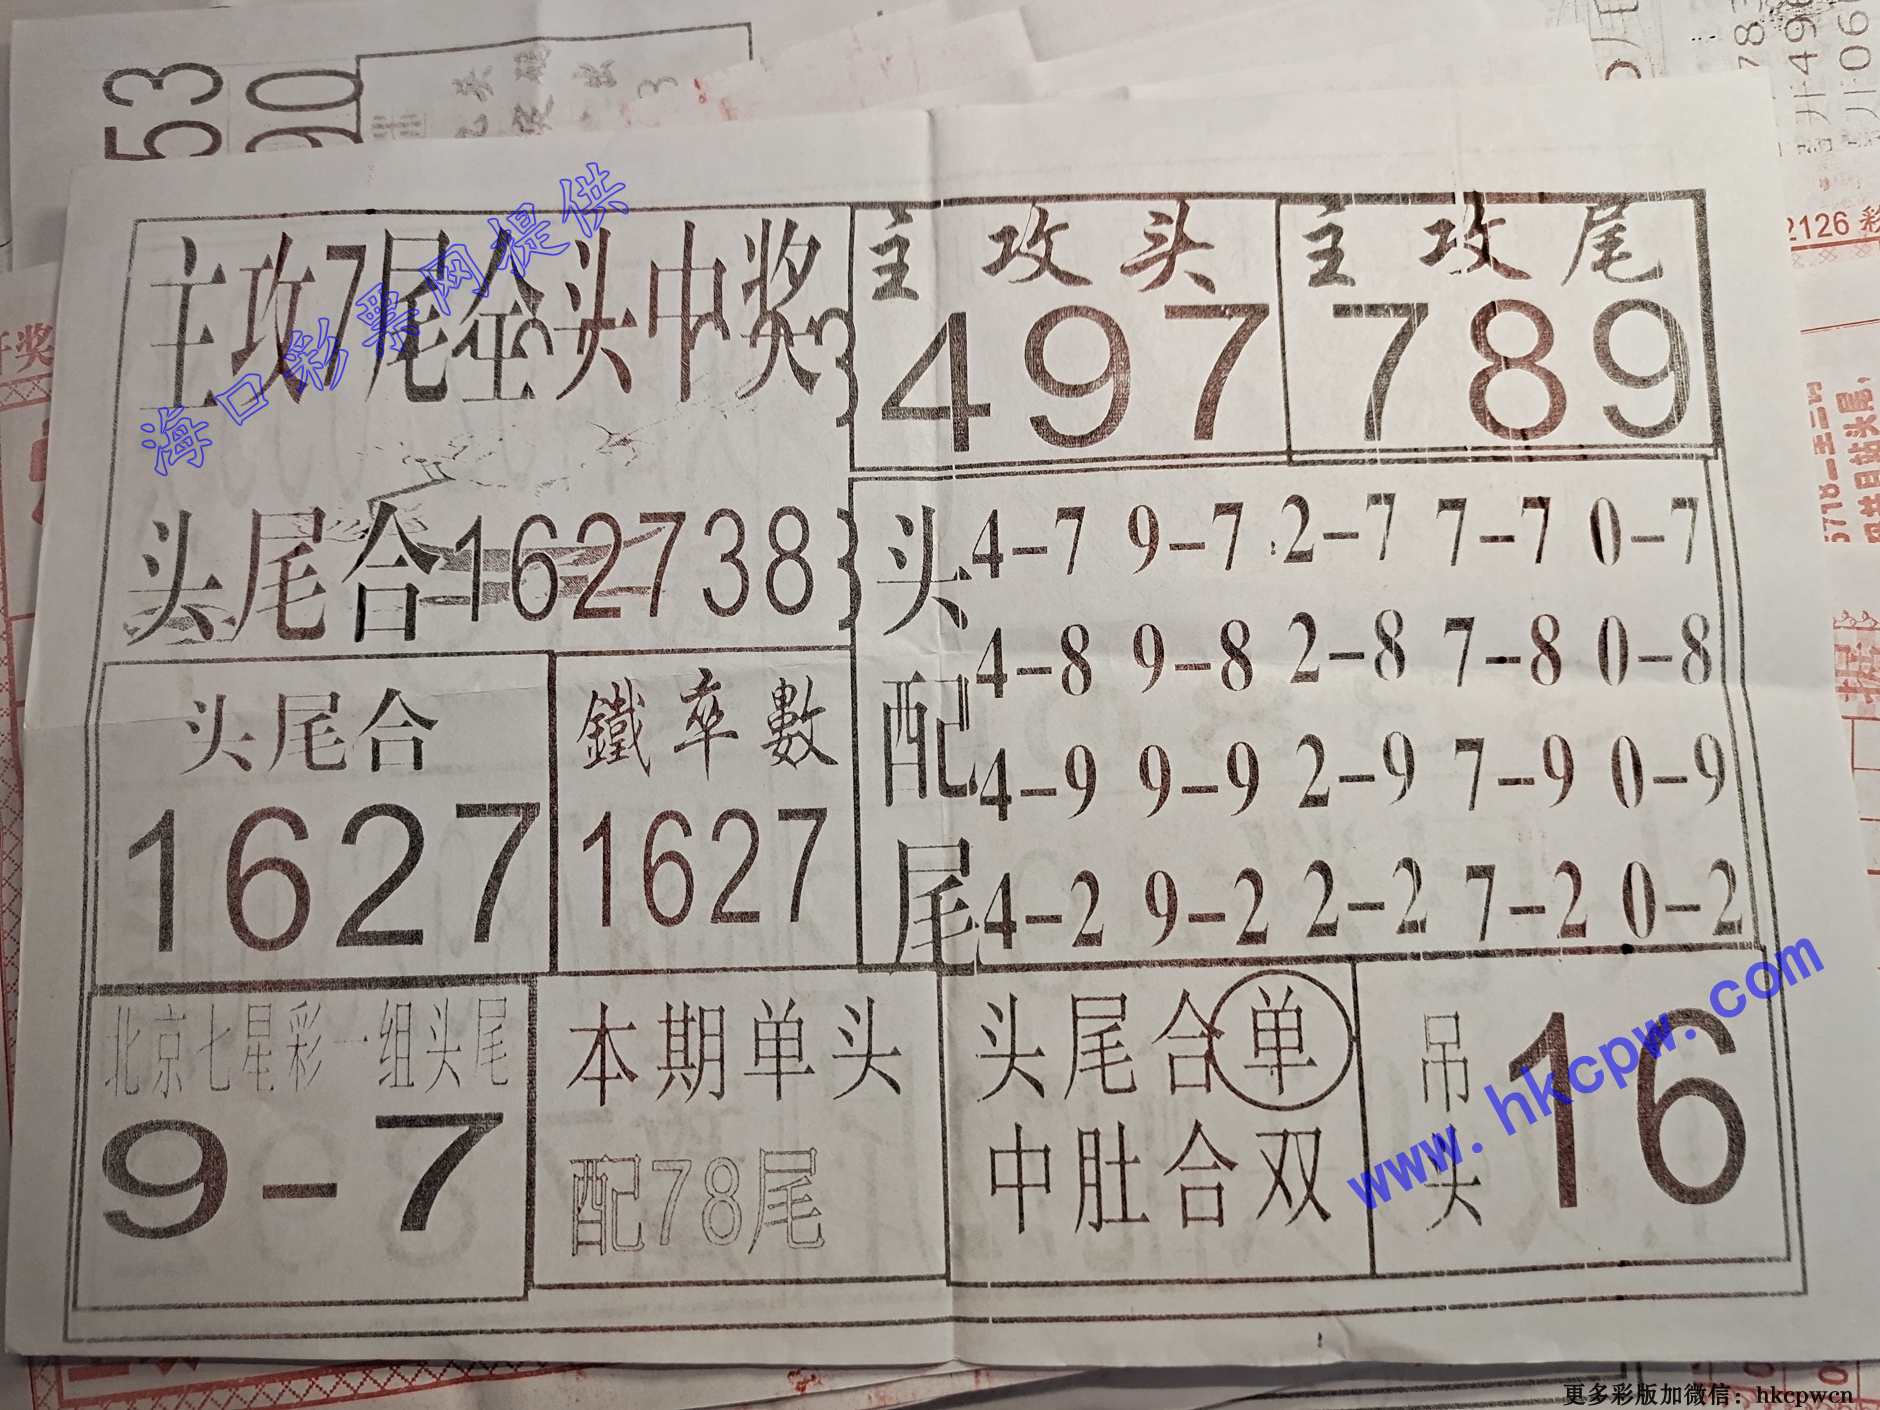 53
90
2126 彩
主攻7尾全头中奖
主攻头
497
主攻尾
789
头尾合162738
头配尾
4-7 9-7 2-7 7-7 0-7
4-8 9-8 2-8 7-8 0-8
4-9 9-9 2-9 7-9 0-9
4-2 9-2 2-2 7-2 0-2
头尾合
1627
鐵率數
1627
北京七星彩一组头尾
9-7
本期单头
配78尾
头尾合单
中肚合双
吊头
16
海口彩票网提供
www.hkcpw.com
更多彩版加微信：hkcpwcn